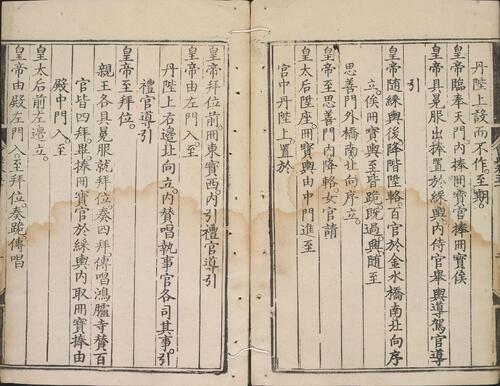 丹陛上設而不作。至期。
皇帝臨奉天門。內捧冊寶官捧冊寶俟
皇帝具冕服出捧置於綵輿。內侍官舉輿導駕官導
引
皇帝隨綵輿後降階陞輅。百官於金水橋南北向序
立。俟冊寶輿至皆跪。既過興隨至
思善門外橋南北向序立。
皇帝至思善門內降輅。女官請
皇太后陞座。冊寶輿由中門進至
宮中丹陛上置於
皇帝拜位前。冊東寶西。內引禮官導引
皇帝由左門入。至
丹陛上右邊北向立。內贊唱執事官各司其事。引
禮官導引
皇帝至拜位。
親王各具冕服就拜位。奏四拜。傳唱。鴻臚寺贊百
官皆四拜畢。捧冊寶官於綵輿內取冊寶捧由
殿中門入。至
皇太后前左邊立。
皇帝由殿左門入。至拜位奏跪。傳唱